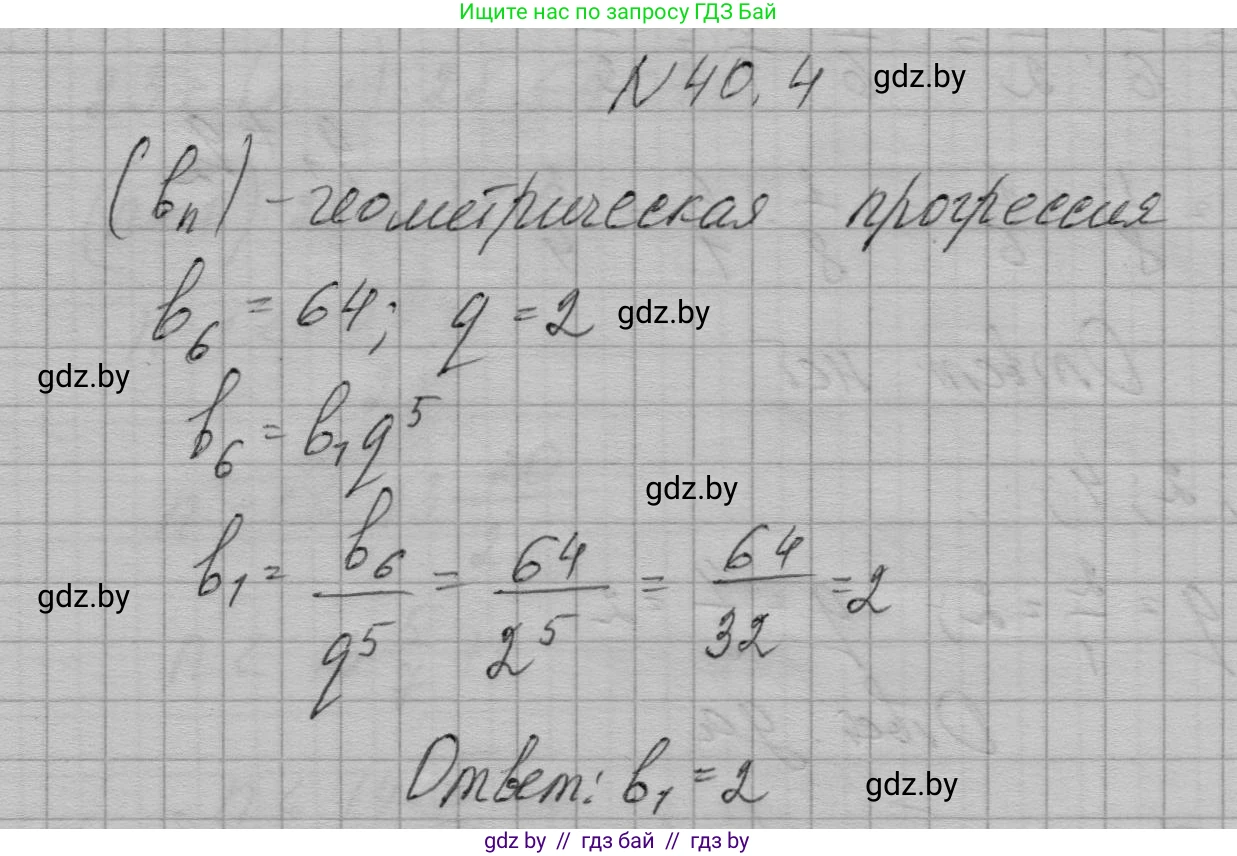 Ищите нас по запросу ГДЗ Бай
N 40.4 gdz.by
(bₙ) - геометрическая прогрессия
b₆ = 64; q = 2 gdz.by
gdz.by
b₆ = b₁q⁵
gdz.by
b₁ = b₆/q⁵ = 64/2⁵ = 64/32 = 2
gdz.by
Ответ: b₁ = 2 gdz.by
gdz by // гдз бай // гдз by